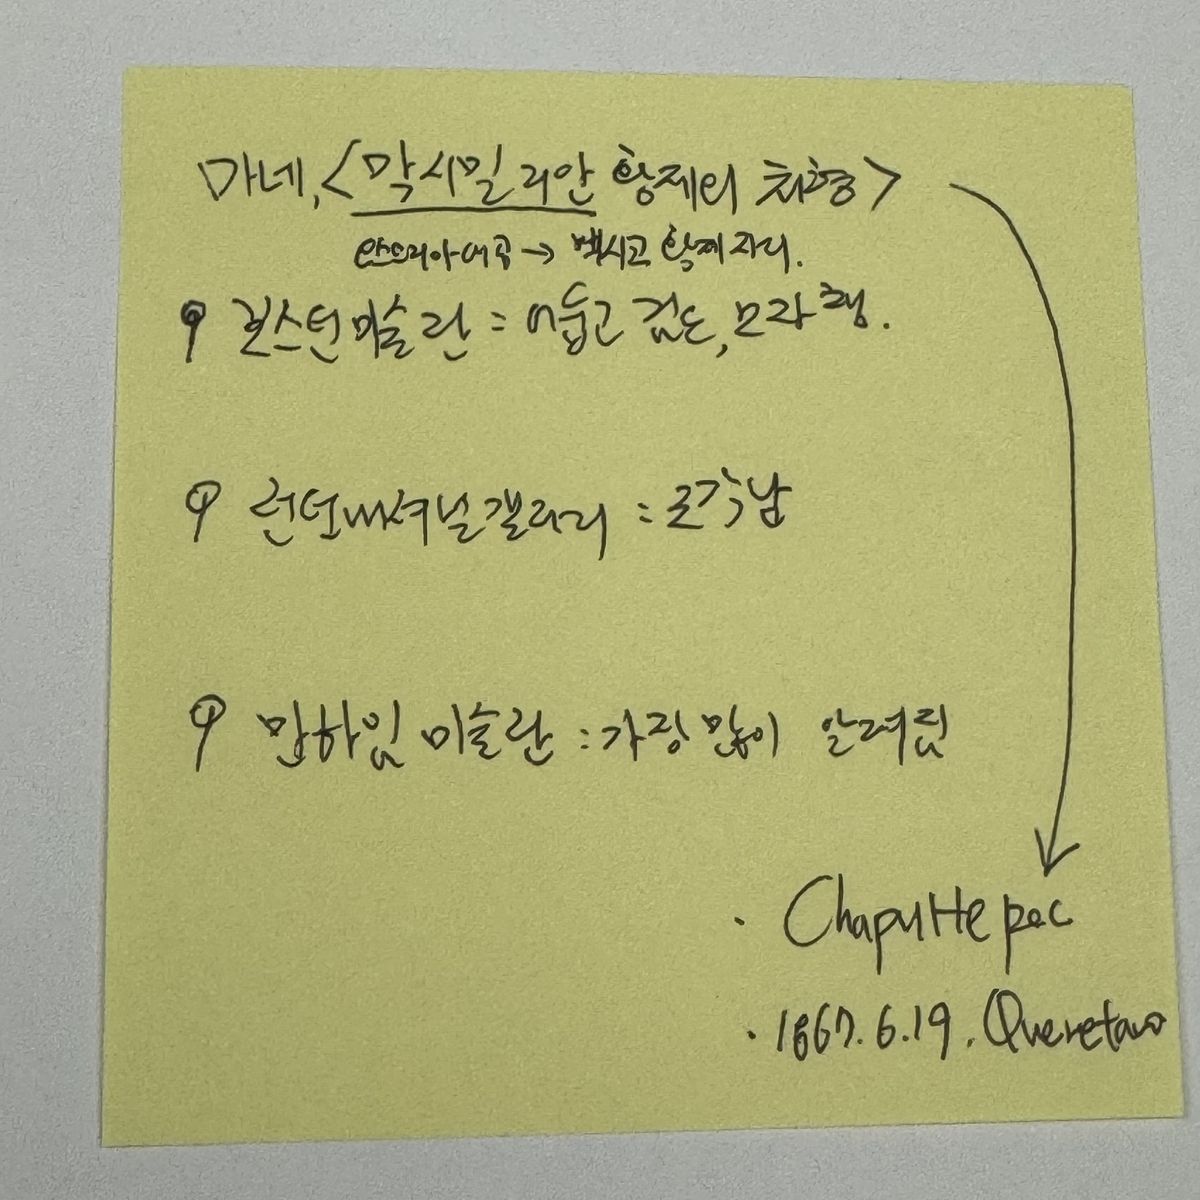 마네, <막시밀리안 황제의 처형>
→ 멕시코 황제 자리.
보스턴미술관 : 어둡고 검은, 모라형.
런던내셔널갤러리 : 조각남
만하임 미술관 : 가장 많이 알려짐
· Chapultepec
· 1867.6.19. Queretaro